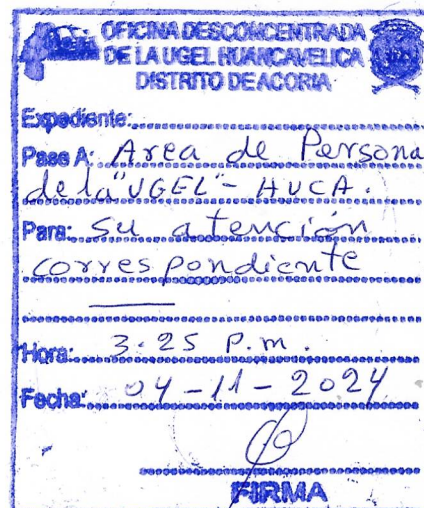 OFICINA DESCONCENTRADA
DE LA UGEL HUANCAVELICA
DISTRITO DE ACORIA
Expediente:
Pase A: Area de Persona
de la "UGEL" - HVCA.
Para: Su atención
correspondiente
Hora: 3:25 P.m.
Fecha: 04-11-2024
FIRMA